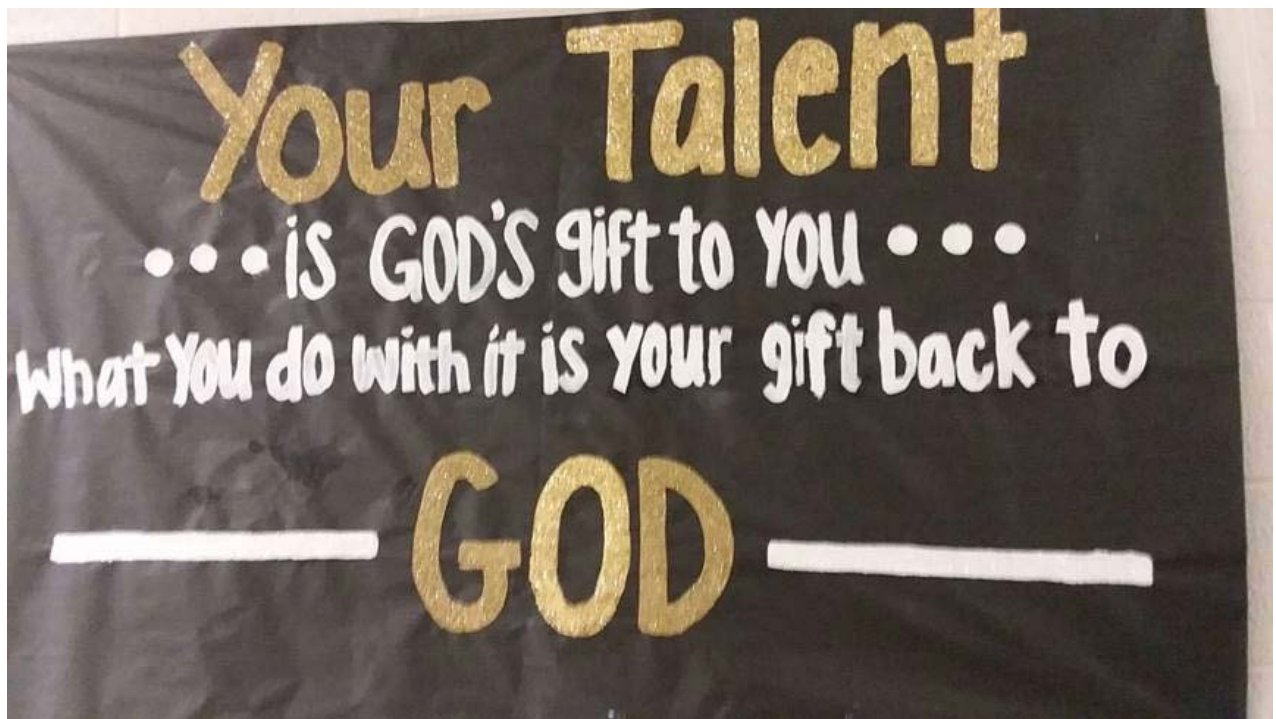 Your Talent
...is GOD'S gift to You...
What You do with it is your gift back to
GOD